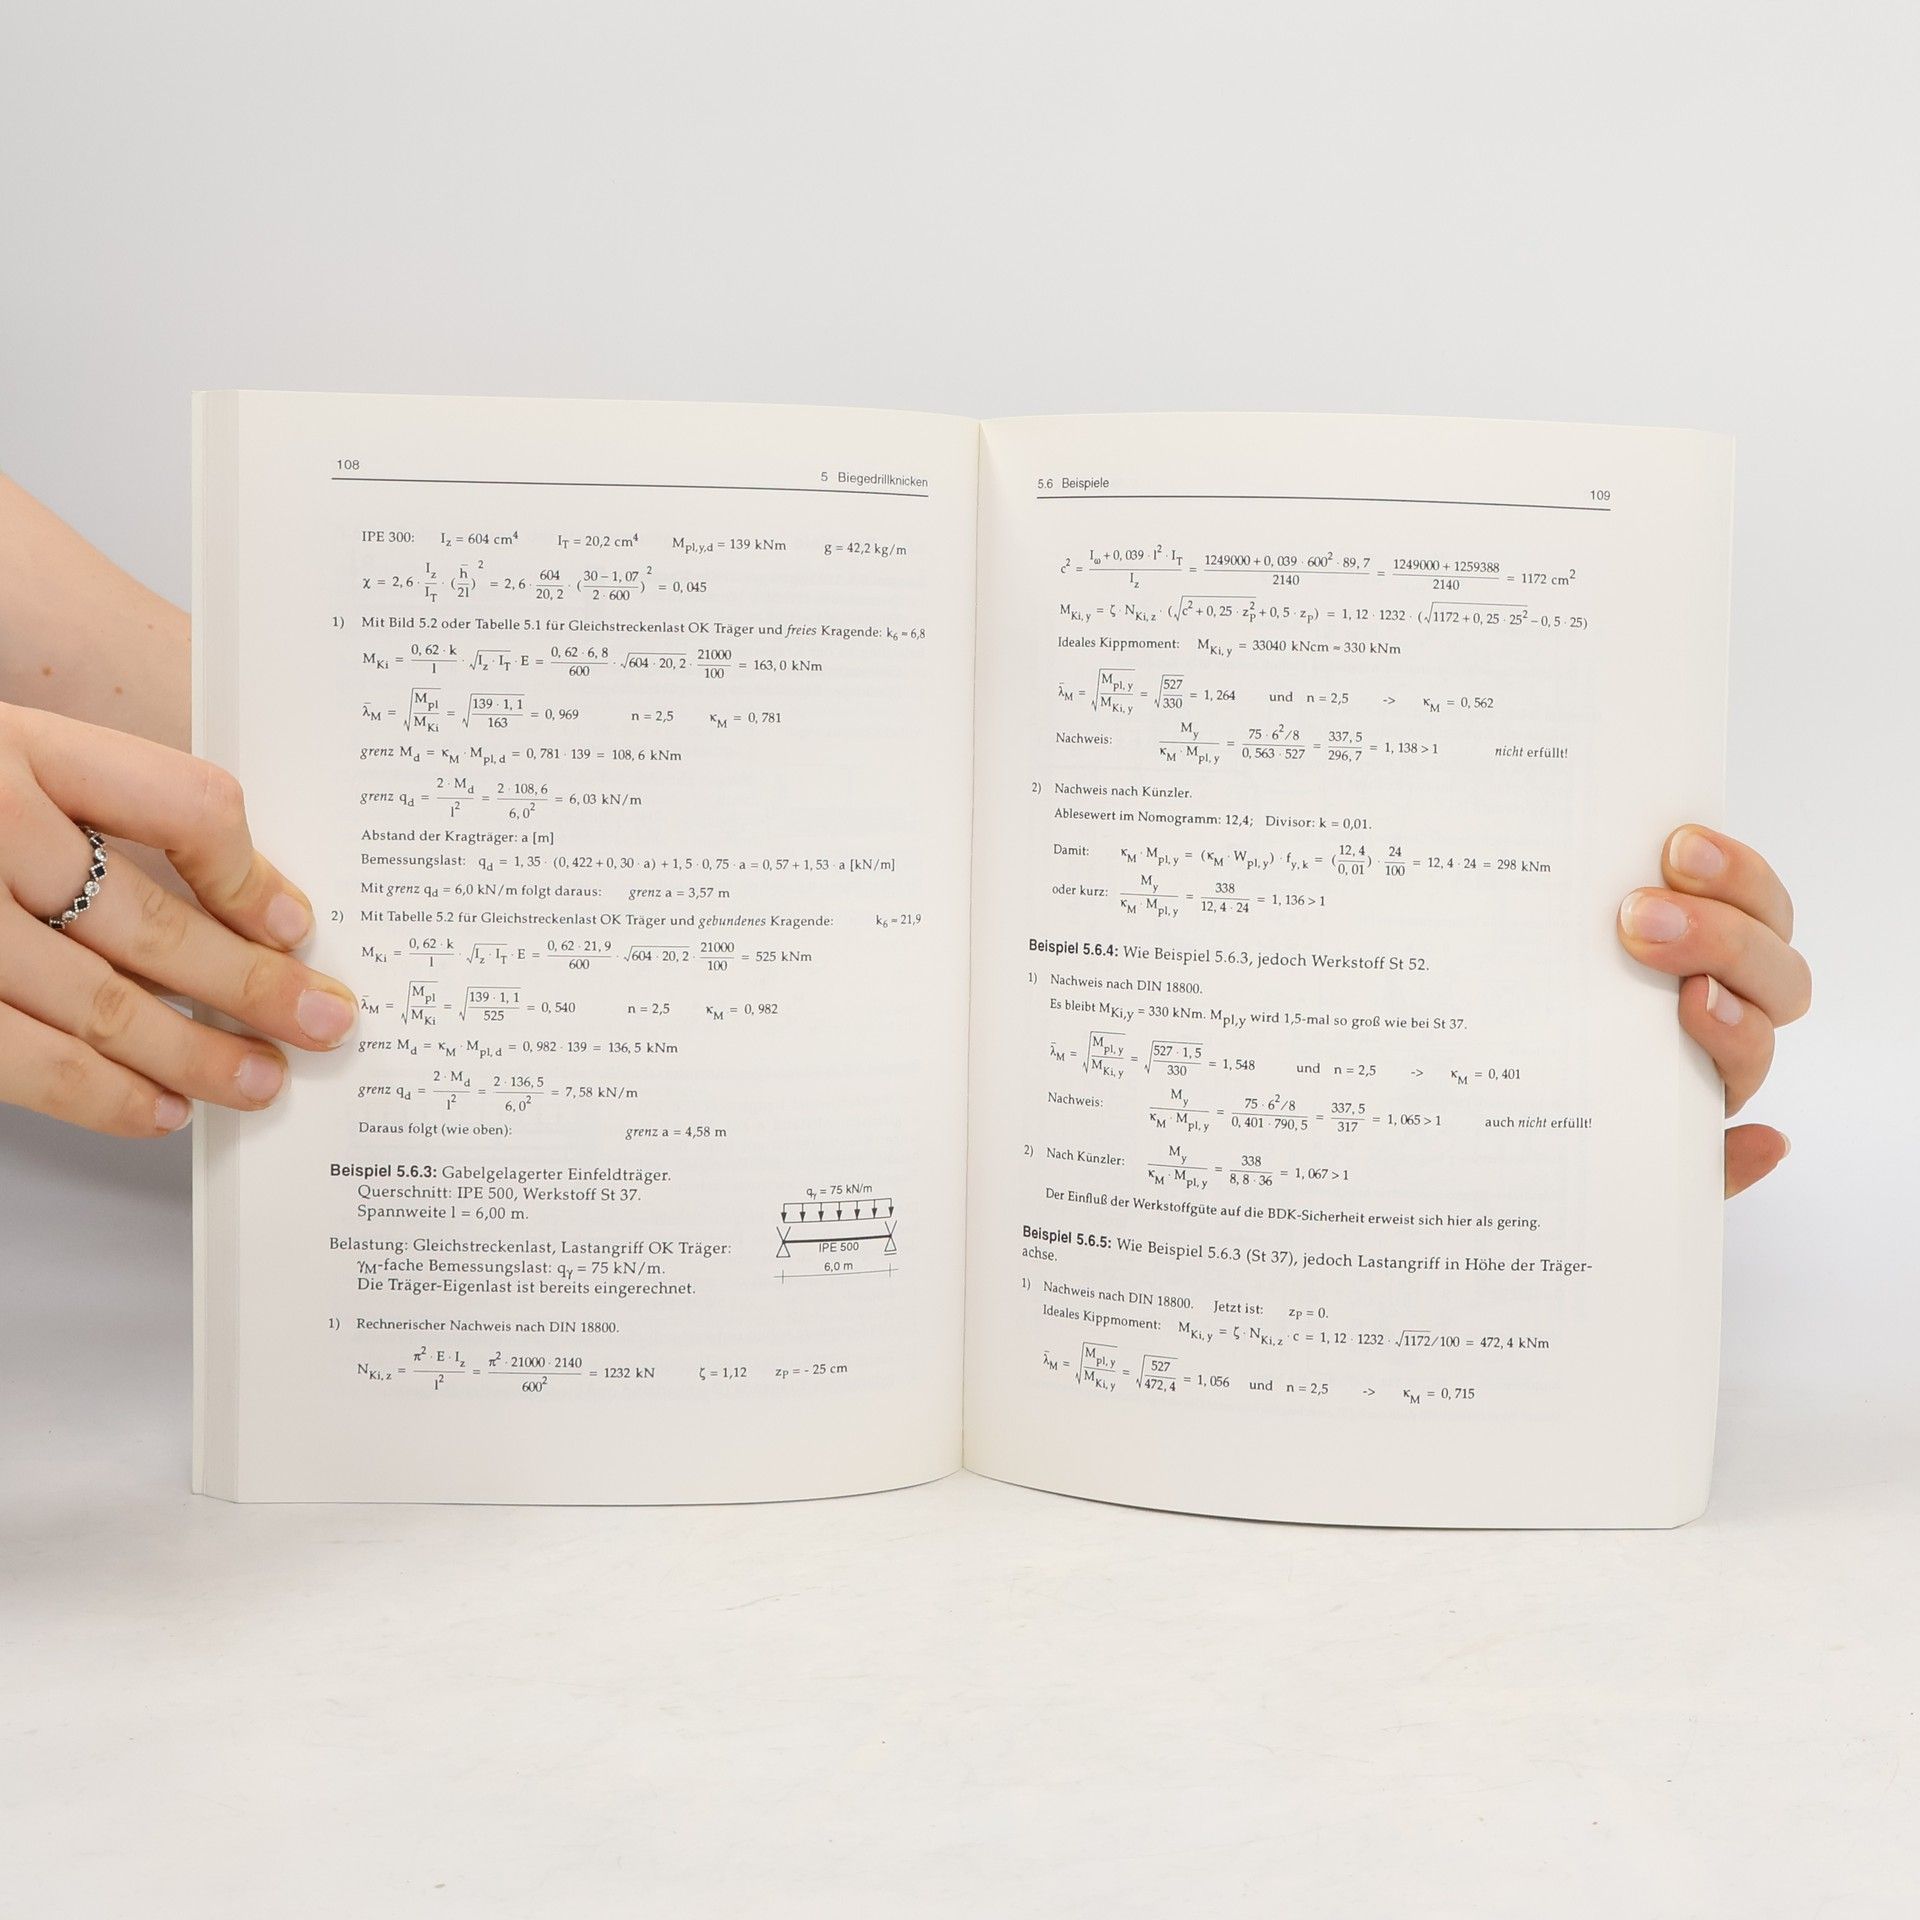 108
5 Biegedrillknicken
IPE 300: I_z = 604 cm⁴ I_T = 20,2 cm⁴ M_pl,y,d = 139 kNm g = 42,2 kg/m
χ = 2,6 · I_z/I_T · (h̄/2l)² = 2,6 · 604/20,2 · ((30 – 1,07)/(2 · 600))² = 0,045
1) Mit Bild 5.2 oder Tabelle 5.1 für Gleichstreckenlast OK Träger und freies Kragende: k₆ ≈ 6,8
M_Ki = (0,62 · k)/l · √(I_z · I_T) · E = (0,62 · 6,8)/600 · √(604 · 20,2) · 21000/100 = 163,0 kNm
λ̄_M = √(M_pl/M_Ki) = √((139 · 1,1)/163) = 0,969 n = 2,5 κ_M = 0,781
grenz M_d = κ_M · M_pl,d = 0,781 · 139 = 108,6 kNm
grenz q_d = (2 · M_d)/l² = (2 · 108,6)/6,0² = 6,03 kN/m
Abstand der Kragträger: a [m]
Bemessungslast: q_d = 1,35 · (0,422 + 0,30 · a) + 1,5 · 0,75 · a = 0,57 + 1,53 · a [kN/m]
Mit grenz q_d = 6,0 kN/m folgt daraus: grenz a = 3,57 m
2) Mit Tabelle 5.2 für Gleichstreckenlast OK Träger und gebundenes Kragende: k₆ ≈ 21,9
M_Ki = (0,62 · k)/l · √(I_z · I_T) · E = (0,62 · 21,9)/600 · √(604 · 20,2) · 21000/100 = 525 kNm
λ̄_M = √(M_pl/M_Ki) = √((139 · 1,1)/525) = 0,540 n = 2,5 κ_M = 0,982
grenz M_d = κ_M · M_pl,d = 0,982 · 139 = 136,5 kNm
grenz q_d = (2 · M_d)/l² = (2 · 136,5)/6,0² = 7,58 kN/m
Daraus folgt (wie oben): grenz a = 4,58 m
Beispiel 5.6.3: Gabelgelagerter Einfeldträger.
Querschnitt: IPE 500, Werkstoff St 37.
Spannweite l = 6,00 m.
Belastung: Gleichstreckenlast, Lastangriff OK Träger:
γ_M-fache Bemessungslast: q_γ = 75 kN/m.
Die Träger-Eigenlast ist bereits eingerechnet.
q_γ = 75 kN/m
IPE 500
6,0 m
1) Rechnerischer Nachweis nach DIN 18800.
N_Ki,z = (π² · E · I_z)/l² = (π² · 21000 · 2140)/600² = 1232 kN ζ = 1,12 z_P = - 25 cm
5.6 Beispiele
109
c² = (I_ω + 0,039 · l² · I_T)/I_z = (1249000 + 0,039 · 600² · 89,7)/2140 = (1249000 + 1259388)/2140 = 1172 cm²
M_Ki,y = ζ · N_Ki,z · (√(c² + 0,25 · z_P²) + 0,5 · z_P) = 1,12 · 1232 · (√(1172 + 0,25 · 25²) – 0,5 · 25)
Ideales Kippmoment: M_Ki,y = 33040 kNcm ≈ 330 kNm
λ̄_M = √(M_pl,y/M_Ki,y) = √(527/330) = 1,264 und n = 2,5 -> κ_M = 0,562
Nachweis: M_y/(κ_M · M_pl,y) = (75 · 6²/8)/(0,563 · 527) = 337,5/296,7 = 1,138 > 1 nicht erfüllt!
2) Nachweis nach Künzler.
Ablesewert im Nomogramm: 12,4; Divisor: k = 0,01.
Damit: κ_M · M_pl,y = (κ_M · W_pl,y) · f_y,k = (12,4/0,01) · 24/100 = 12,4 · 24 = 298 kNm
oder kurz: M_y/(κ_M · M_pl,y) = 338/(12,4 · 24) = 1,136 > 1
Beispiel 5.6.4: Wie Beispiel 5.6.3, jedoch Werkstoff St 52.
1) Nachweis nach DIN 18800.
Es bleibt M_Ki,y = 330 kNm. M_pl,y wird 1,5-mal so groß wie bei St 37.
λ̄_M = √(M_pl,y/M_Ki,y) = √((527 · 1,5)/330) = 1,548 und n = 2,5 -> κ_M = 0,401
Nachweis: M_y/(κ_M · M_pl,y) = (75 · 6²/8)/(0,401 · 790,5) = 337,5/317 = 1,065 > 1 auch nicht erfüllt!
2) Nach Künzler: M_y/(κ_M · M_pl,y) = 338/(8,8 · 36) = 1,067 > 1
Der Einfluß der Werkstoffgüte auf die BDK-Sicherheit erweist sich hier als gering.
Beispiel 5.6.5: Wie Beispiel 5.6.3 (St 37), jedoch Lastangriff in Höhe der Träger-
achse.
1) Nachweis nach DIN 18800. Jetzt ist: z_P = 0.
Ideales Kippmoment: M_Ki,y = ζ · N_Ki,z · c = 1,12 · 1232 · √1172/100 = 472,4 kNm
λ̄_M = √(M_pl,y/M_Ki,y) = √(527/472,4) = 1,056 und n = 2,5 -> κ_M = 0,715